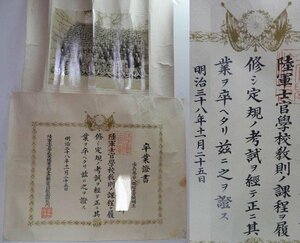 陸軍士官學校敎則ノ課程ヲ履
修シ定規ノ考試ヲ經テ正ニ其
業ヲ卒ヘタリ玆ニ之ヲ證ス
明治三十八年十一月二十五日
卒業證書
陸軍士官學校敎則ノ課程ヲ履
修シ定規ノ考試ヲ經テ正ニ其
業ヲ卒ヘタリ玆ニ之ヲ證ス
明治三十八年十一月二十五日